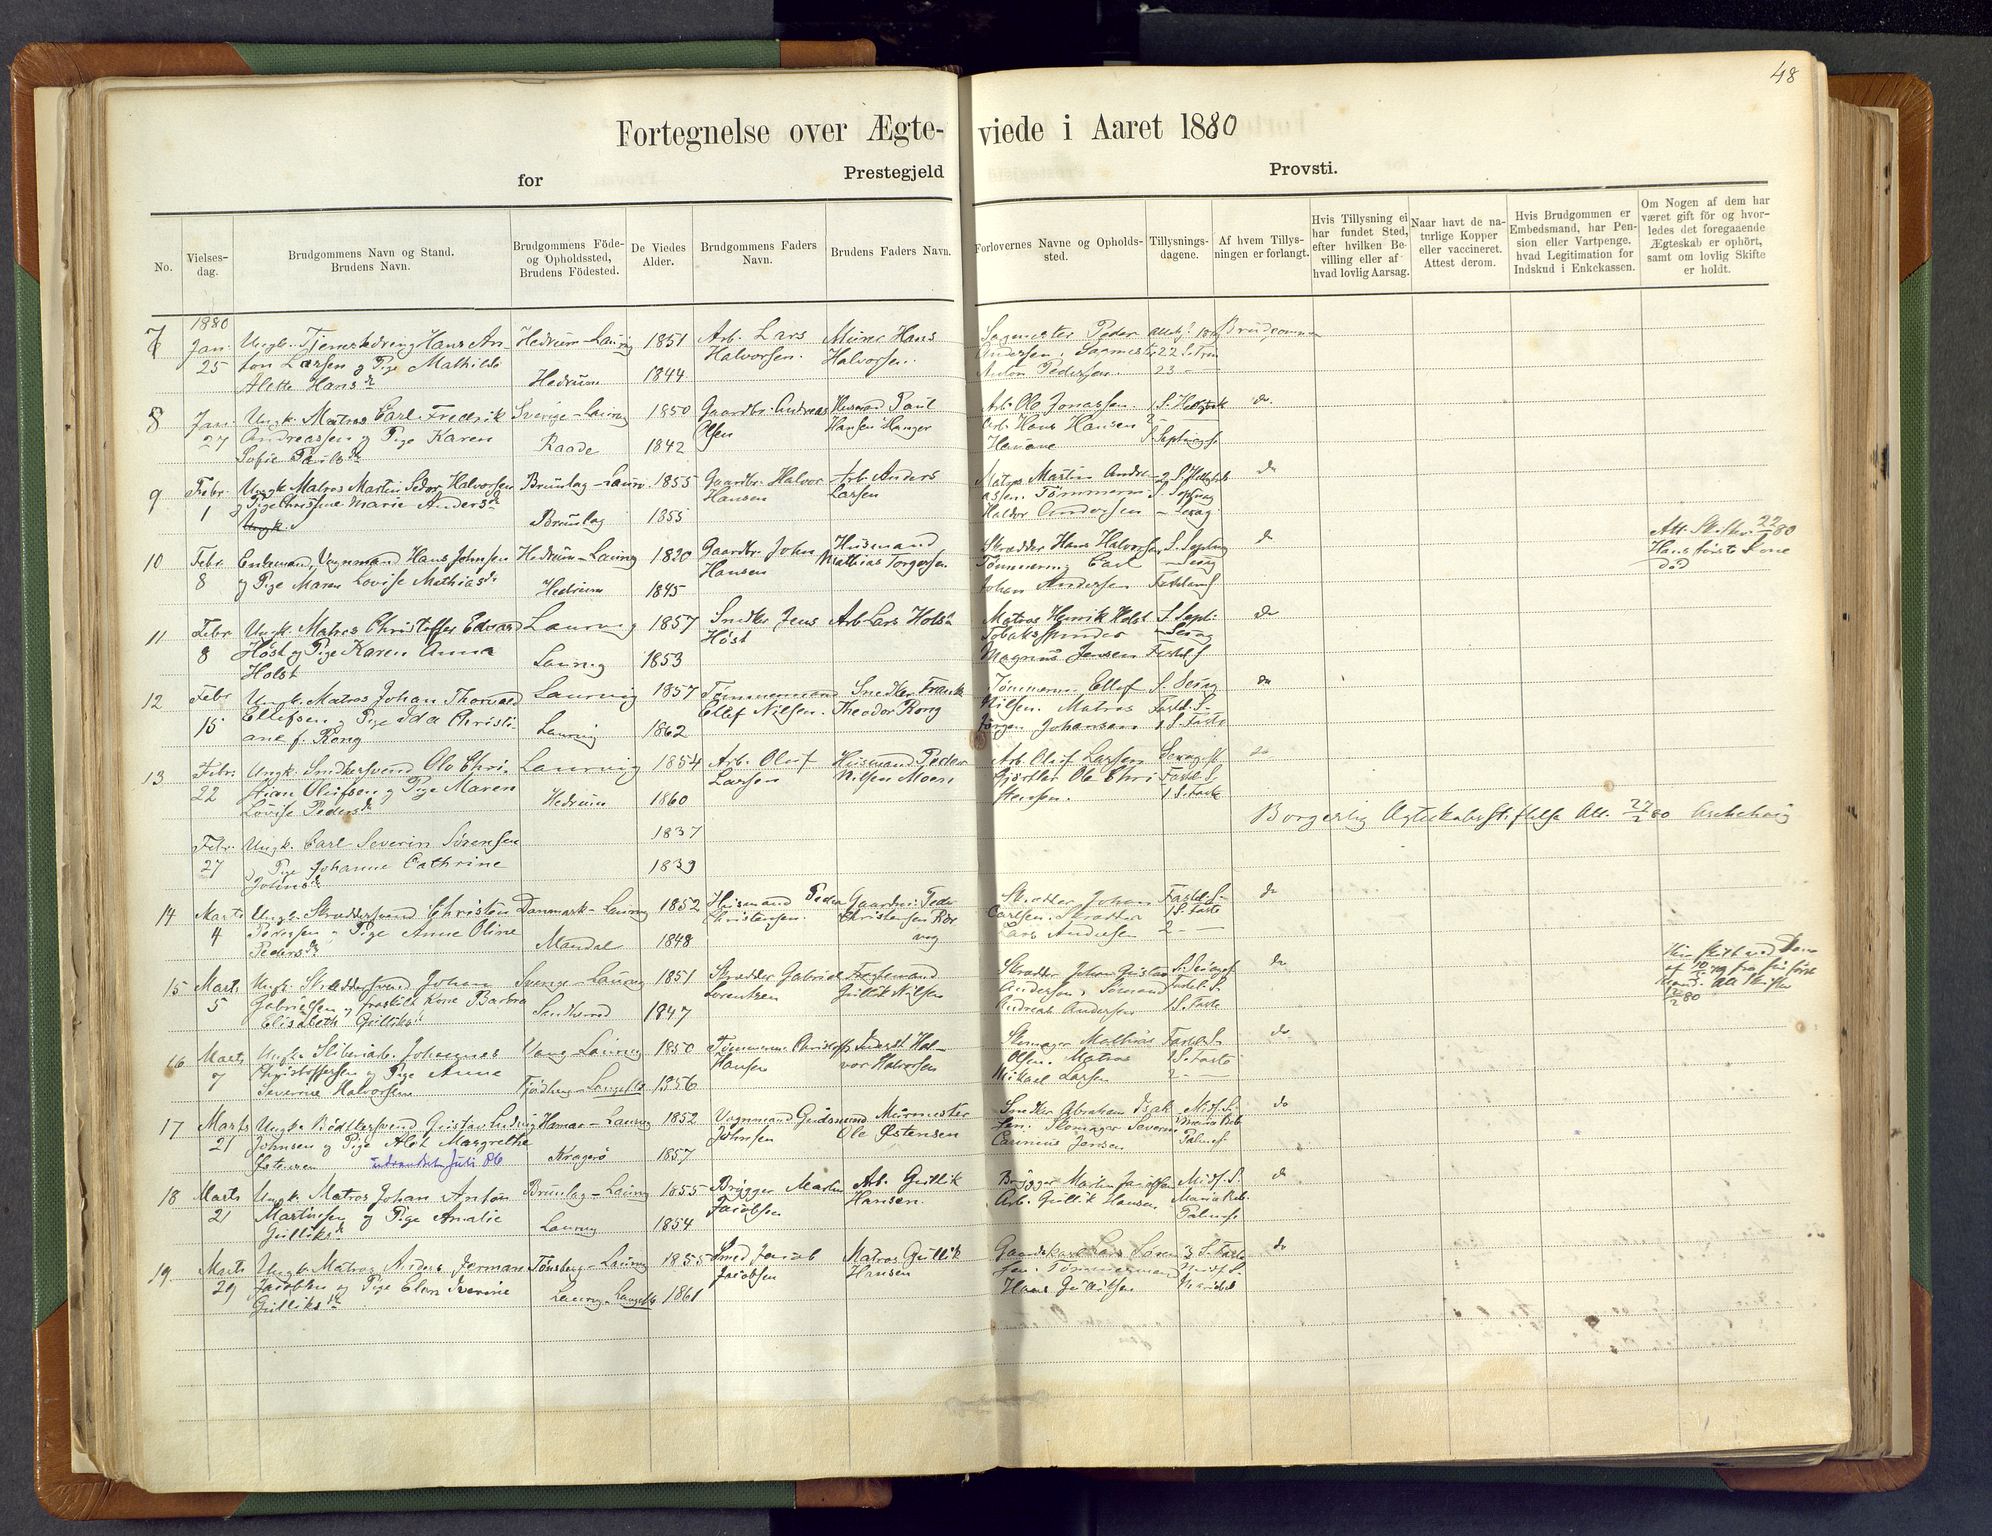 48
Fortegnelse over Ægte- viede i Aaret 1880
for Prestegjeld Provsti.
No.
Vielses-
dag.
Brudgommens Navn og Stand.
Brudens Navn.
Brudgommens Føde-
og Opholdssted,
Brudens Fødested.
De Viedes
Alder.
Brudgommens Faders
Navn.
Brudens Faders Navn.
Forlovernes Navne og Opholds-
sted.
Tillysnings-
dagene.
Af hvem Tillys-
ningen er forlangt.
Hvis Tillysning ei
har fundet Sted,
efter hvilken Be-
villing eller af
hvad lovlig Aarsag.
Naar havt de na-
turlige Kopper
eller vaccineret.
Attest derom.
Hvis Brudgommen er
Embedsmand, har Pen-
sion eller Vartpenge.
hvad Legitimation for
Indskud i Enkekassen.
Om Nogen af dem har
været gift för og hvor-
ledes det foregaaende
Ægteskab er ophört,
samt om lovlig Skifte
er holdt.
1880
7 Jan. 25
Ungk. Tjenestedreng Hans An
ton Larsen og Pige Mathilde
Alette Hansd.
Hedrum-Laurvig
Hedrum
1851
1844
Arb. Lars
Halvorsen.
Murer Hans
Halvorsen.
Sagmester Peder
Andersen. Sagmester
Anton Pedersen.
22 S. Trin
23 -
Brudgommen
8 Jan. 27
Ungk. Matros Carl Fredrik
Andreassen og Pige Karen
Sofie Paulsd.
Sverige-Laurvig
Raade
1850
1842
Gaardbr. Andreas
Olsen
Husmand Paul
Hansen Hanger
Arb. Ole Jonassen.
Arb. Hans Hansen
Havane
do.
9 Febr. 1
Ungk. Matros Martin Sedor Halvorsen
og Pige Christine Marie Andersd.
Ungk.
Brunlag-Laurv
Brunlag
1855
1855
Gaardbr. Halvor
Hansen
Arb. Anders
Larsen
Matros Martin Andre-
assen. Tømmerm
Haldor Andersen
do
10 Febr. 8
Enkemand, Vognmand Hans Johnsen
og Pige Maren Lovise Mathiasd.
Hedrum-Laurvig
Hedrum
1820
1845
Gaardbr. John
Hansen
Husmand
Mathias Torgersen
Skrædder Hans Halvorsen
Tømmerm. Carl
Johan Andersen
S. Septuag
- Sexag
Fastelavns
do
Att. Skifter 22/1 80
Hans første Kone
død
11 Febr 8
Ungk. Matros Christoffer Edvard
Høst og Pige Karen Anna
Holst
Laurvig
Laurvig
1857
1853
Snedker Jens
Høst
Arb Lars Holst
Matros Henrik Holst
Tobakspinder
Magnus Jensen
S. Septi
- Sexag
Fastel S
do
12 Febr 15
Ungk. Matros Johan Thorvald
Ellefsen og Pige Ida Christi-
ane f. Rong
Laurvig
Laurvig
1857
1862
Tømmermand
Ellef Nilsen.
Snedker Frank
Theodor Rong
Tømmerm. Ellef
Nilsen. Matros
Jørgen Johansen
S. Sexag
Fastel. S.
1 S. Faste
do
13 Febr. 22
Ungk. Snedkersvend Ole Chri-
stian Olufsen og Pige Maren
Lovise Pedersd.
Laurvig
Hedrum
1854
1860
Arb. Oluf
Larsen
Husmand Peder
Nilsen Moen
Arb Oluf Larsen
Gjørtler Ole Chri
stensen.
Sexag S
Fastel. S.
1 S. Faste
do
Febr. 27
Ungk. Carl Severin Sørensen
og Pige Johanne Cathrine
Johnsd.
1837
1839
Borgerlig Ægteskabsstiftelse Att. 27/2 80 Aschehoug
14 Marts 4
Ungk. Skræddersvend Christen
Pedersen og Pige Anne Oline
Pedersd.
Danmark-Laurvig
Mandal
1852
1848
Husmand Peder
Christensen.
Gaardm: Peder
Christensen Rös
vog
Skrædder Johan
Carlsen. Skrædder
Lars Andersen
Fastel S.
1 S. Faste
2 -
do
15 Marts 5
Ungk. Skræddersvend Johan
Gabrielsen og fraskilt Kone Barbra
Elisabeth Gulliksd.
Sverige-Laurvig
Sandherred
1851
1847
Skrædder Gabriel
Lorentzen
Gullik Nilsen
Skrædder Johan Gustav
Anderson, Sømand
Andreas Andersen
S. Sexages.
Fastel. S.
1 S. Faste
do
Hun skilt ved Dom
af 10/5 79 fra sin først
Mand. Att Skifter
80
16 Marts 7
Ungk. Sliberiarb. Johannes
Christoffersen og Pige Anne
Severine Halvorsen
Vang-Laurvig
Fjordberg-Langestr
1850
1856
Tømmerm. Christoffer
Hansen
Inderst Hal-
vor Halvorsen
Skomager Mathias
Olsen. Matros
Mikael Larsen
Fastel S
1 S. Faste
2 -
do
17 Marts 21
Ungk. Bødkersvend Gustav Ludvig
Johnsen og Pige Alet Margrethe
Østensen
udvandret Juli 86
Hamar-Laurvig
Kragerø
1852
1857
Vognmand Gudmund
Johnsen
Murmester
Ole Østensen
Snedker Abraham Isak
sen. Skomager Severin
Carinius Jensen
Midf. S.
Maria Beb
Palmes.
do
18 Marts 21
Ungk. Matros Johan Anton
Martinsen og Pige Amalie
Gulliksd.
Brunlag-Laurvig
Laurvig
1855
1854
Brygger Martin
Jacobsen
Arb. Gullik
Hansen.
Brygger Martin Jacobsen
Arb. Gullik Hansen
Midf. S.
Maria Beb.
Palmes.
do
19. Marts 29
Ungk. Matros Anders Herman
Jacobsen og Pige Elen Severine
Gulliksd.
Tønsberg-Laurvig
Laurvig-Langestr
1855
1861
Smed Jacob
Jacobsen
Matros Gullik
Hansen
Gaardskarl Lars Søren
sen. Tømmermand
Hans Jacobsen
3 S. Faste
Midf. S.
do